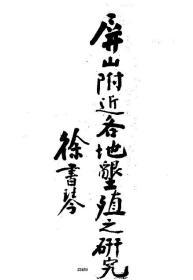 屏山附近各地墾殖之研究
徐書琴